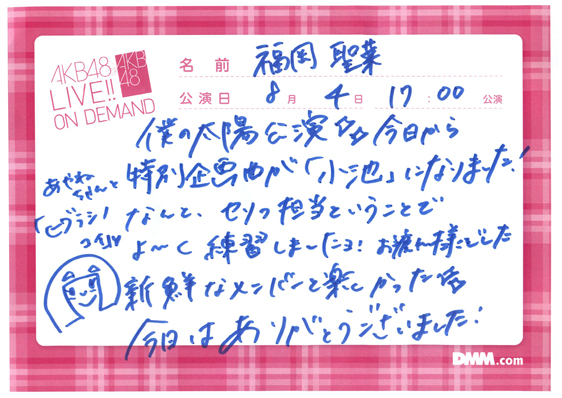 AKB48
LIVE!!
ON DEMAND
AKB
48
名前 福岡 聖菜
公演日 8月 4日 17:00 公演
僕の太陽公演 今日から
特別企画曲が「小池」になりました!
あやね
ちゃんと
なんと、セリフ担当ということで
よ〜く練習しましたヨ! お疲れ様でした
新鮮なメンバーと楽しかった
今日はありがとうございました!
DMM.com